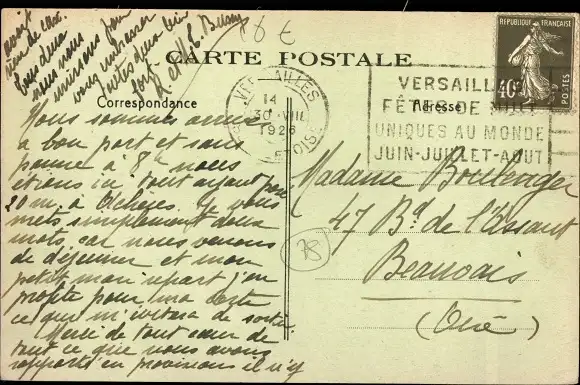 CARTE POSTALE
Correspondance
Adresse
RÉPUBLIQUE FRANÇAISE
40c
POSTES
VERSAILLES
14
30 VII
1926
ET-OISE
VERSAILLES
FÊTES DE NUIT
UNIQUES AU MONDE
JUIN-JUILLET-AOUT
18 €
78
Madame Boulenger
47 Bd de l'Assaut
Beauvais
(Oise)
Nous sommes arrivés
à bon port et sans
panne à 8h nous
étions ici tout ayant posé
20 m. à Achères. Je vous
mets simplement deux
mots, car nous venons
de déjeuner et mon
petit mari repart j'en
profite pour ma carte
ce qui m'évitera de sortir.
Merci de tout cœur de
tout ce que nous avons
rapporté en provisions il n'y
avait
rien de
tous deux
nous nous
unissons pour
vous embrasser
toutes deux bien
fort